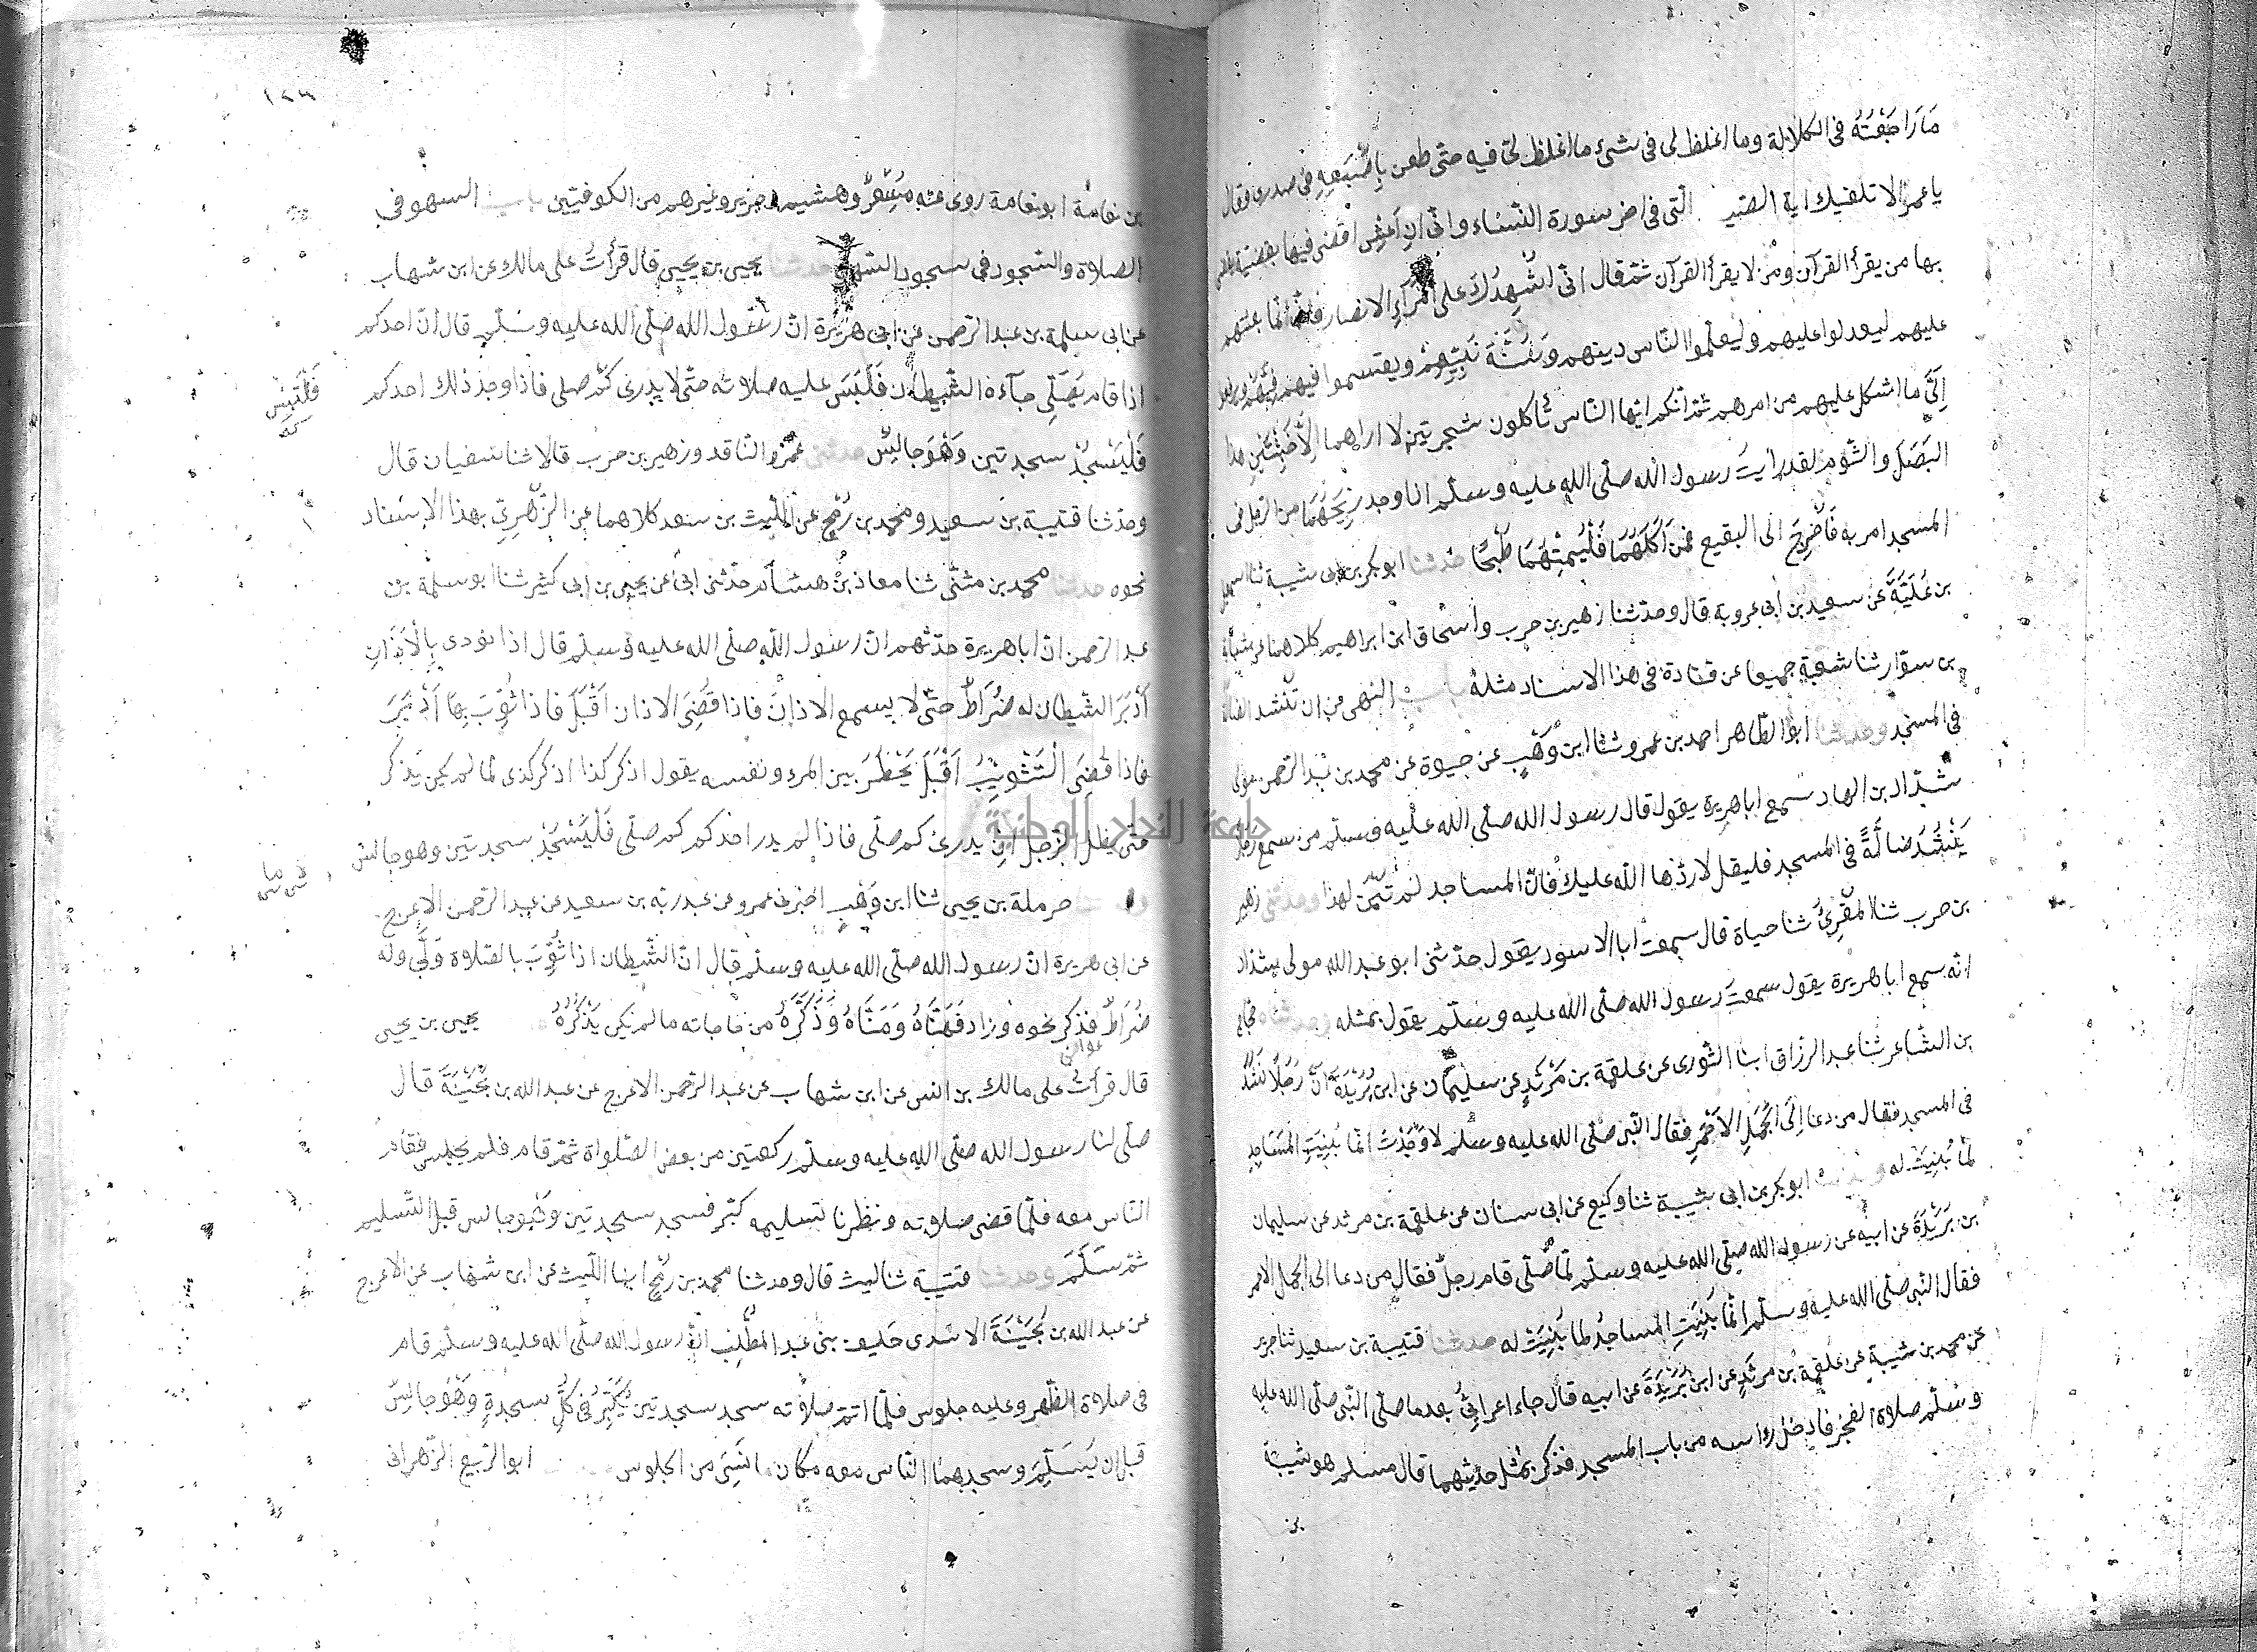 مَا رَاجَعْتُهُ فى الكلالة وما اغلظ لى فى شئ ما اغلظ لى فيه حتى طعن بِاِصْبَعِهِ فى صدرى وقال
يا عمر الا تكفيك اية الصيف التى فى اخر سورة النساء وانى ان اَعِش اقضى فيها بقضية يقضى
بها من يقرأ القرآن ومن لا يقرأ القرآن ثم قال انى اُشْهِدُكَ على اُمَرَآءِ الانصار فانى انما بعثتهم
عليهم ليعدلوا عليهم وليعلموا الناس دينهم وَسُنَّةَ نَبِيِّهِمْ ويقتسموا فيهم فَيْئَهُمْ ويرفعوا
اِلَىَّ ما اشكل عليهم من امرهم ثم انكم ايها الناس تأكلون شجرتين لا اراهما اِلَّا خَبِيثَتَيْنِ هذا
البَصَل والثوم لقد رايت رسول الله صلى الله عليه وسلم اذا وجد رِيحَهُمَا من الرجل فى
المسجد امر به فَاُخْرِجَ الى البقيع فمن اَكَلَهُمَا فَلْيُمِتْهُمَا طَبْخًا حدثنا ابو بكر بن ابى شيبة ثنا اسمعيل
بن عُلَيَّةَ عن سعيد بن ابى عروبة قال وحدثنا زهير بن حرب واسحاق ابن ابراهيم كلاهما عن شبابة
بن سوّار ثنا شعبة جميعا عن قتادة فى هذا الاسناد مثله باب النهى من ان تنشد الضالة
فى المسجد وحدثنا ابو الطاهر احمد بن عمرو ثنا ابن وَهْبٍ عن حيوة عن محمد بن عبد الرحمن عن مولى
شداد بن الهاد سمع ابا هريرة يقول قال رسول الله صلى الله عليه وسلم من سمع رجلا
يَنْشُدُ ضالَّةً فى المسجد فليقل لا ردها الله عليك فان المساجد لم تُبْنَ لهذا وحدثنى زهير
بن حرب ثنا المقرئ ثنا حياة قال سمعت ابا الاسود يقول حدثنى ابو عبد الله مولى شداد
انه سمع ابا هريرة يقول سمعت رسول الله صلى الله عليه وسلم يقول بمثله وحدثنا حجاج
بن الشاعر ثنا عبد الرزاق ابنا الثورى عن علقمة بن مَرْثَدٍ عن سليمان عن ابن بُرَيْدَةَ انَّ رَجُلًا نَشَدَ
فى المسجد فقال من دعا اِلَى الجَمَلِ الاَحْمَرِ فقال النبى صلى الله عليه وسلم لا وَجَدْتَ انما بُنِيَتِ المَسَاجِدُ
لما بُنِيَتْ له وحدثنا ابو بكر بن ابى شيبة ثنا وكيع عن ابى سنان عن علقمة بن مرثد عن سليمان
بن بُرَيْدَةَ عن ابيه عن رسول الله صلى الله عليه وسلم لما صلّى قام رجل فقال من دعا الى الجمل الاحمر
فقال النبى صلى الله عليه وسلم انما بُنِيَتِ المساجدُ لما بُنِيَتْ له حدثنا قتيبة بن سعيد ثنا جرير
عن محمد بن شيبة عن علقمة بن مرثد عن ابن بُرَيْدَةَ عن ابيه قال جاء اعرابى بعد ما صلى النبى صلى الله عليه
وسلم صلاة الفجر فادخل راسه من باب المسجد فذكر بمثل حديثهما قال مسلم هو شيبة
بن
١٢٣
بن نعامة ابو نعامة روى عنه مِسْعَرٌ وهشيم وجرير وغيرهم من الكوفيين باب السهو فى
الصلاة والسجود فى سجود السهو حدثنا يحيى بن يحيى قال قرأت على مالك عن ابن شهاب
عن ابى سلمة بن عبد الرحمن عن ابى هريرة ان رسول الله صلى الله عليه وسلم قال ان احدكم
اذا قام يُصَلِّى جآءه الشيطان فَلَبَسَ عليه صلاته حتى لا يدرى كم صلى فاذا وجد ذلك احدكم
فَلْيَسْجُدْ سجدتين وَهُوَ جالِسٌ حدثنى عمرو الناقد وزهير بن حرب قالا ثنا سفيان قال
وحدثنا قتيبة بن سعيد ومحمد بن رُمْحٍ عن الليث بن سعد كلاهما عن الزُّهْرِىِّ بهذا الاِسْناد
نحوه حدثنا محمد بن مثنى ثنا معاذ بن هشام حدثنى ابى عن يحيى بن ابى كثير ثنا ابو سلمة بن
عبد الرحمن ان ابا هريرة حدثهم ان رسول الله صلى الله عليه وسلم قال اذا نودى بِالْاَذَانِ
اَدْبَرَ الشيطان له ضُرَاطٌ حتى لا يسمع الاذان فاذا قُضِىَ الاذان اَقْبَلَ فاذا ثُوِّبَ بها اَدْبَرَ
فاذا قُضِىَ التَّثْوِيبُ اَقْبَلَ يَخْطُرَ بين المرء ونفسه يقول اذكر كذا اذكر كذى لما لم يكن يذكر
حتى يظل الرجل اِنْ يدرى كم صلى فاذا لم يدر احدكم كم صلى فَلْيَسْجُدْ سجدتين وهو جالس
حرملة بن يحيى ثنا ابن وَهْبٍ اخبرنى عمرو عن عبد ربه بن سعيد عن عبد الرحمن الاعرج
عن ابى هريرة ان رسول الله صلى الله عليه وسلم قال ان الشيطان اذا ثُوِّبَ بالصلاة وَلَّى وله
ضُرَاطٌ فذكر نحوه وزاد فَهَنَّاهُ وَمَنَّاهُ وَذَكَّرَهُ من حاجاته ما لم يكن يَذْكُرُهُ يحيى بن يحيى
قال قرأت على مالك بن انس عن ابن شهاب عن عبد الرحمن الاعرج عن عبد الله بن بُحَيْنَةَ قال
صلى لنا رسول الله صلى الله عليه وسلم ركعتين من بعض الصلواة ثم قام فلم يجلس فقام
الناس معه فلما قضى صلاته ونظرنا تسليمه كبّر فسجد سجدتين وَهُوَ جالس قبل التسليم
ثم سَلَّمَ وحدثنا قتيبة ثنا ليث قال وحدثنا محمد بن رُمْحٍ ابنا الليث عن ابن شهاب عن الاعرج
عن عبد الله بن بُحَيْنَةَ الاسدى حليف بنى عبد المطلب ان رسول الله صلى الله عليه وسلم قام
فى صلاة الظهر وعليه جلوس فلما اتم صلاته سجد سجدتين يُكَبِّرُ فى كُلِّ سجدةٍ وَهُوَ جالِسٌ
قبل ان يُسَلِّمَ وسجدهما الناس معه مكان ما نَسِىَ من الجلوس ابو الربيع الزهرانى
فَلَبَّسَ
جامعة النجاح الوطنية